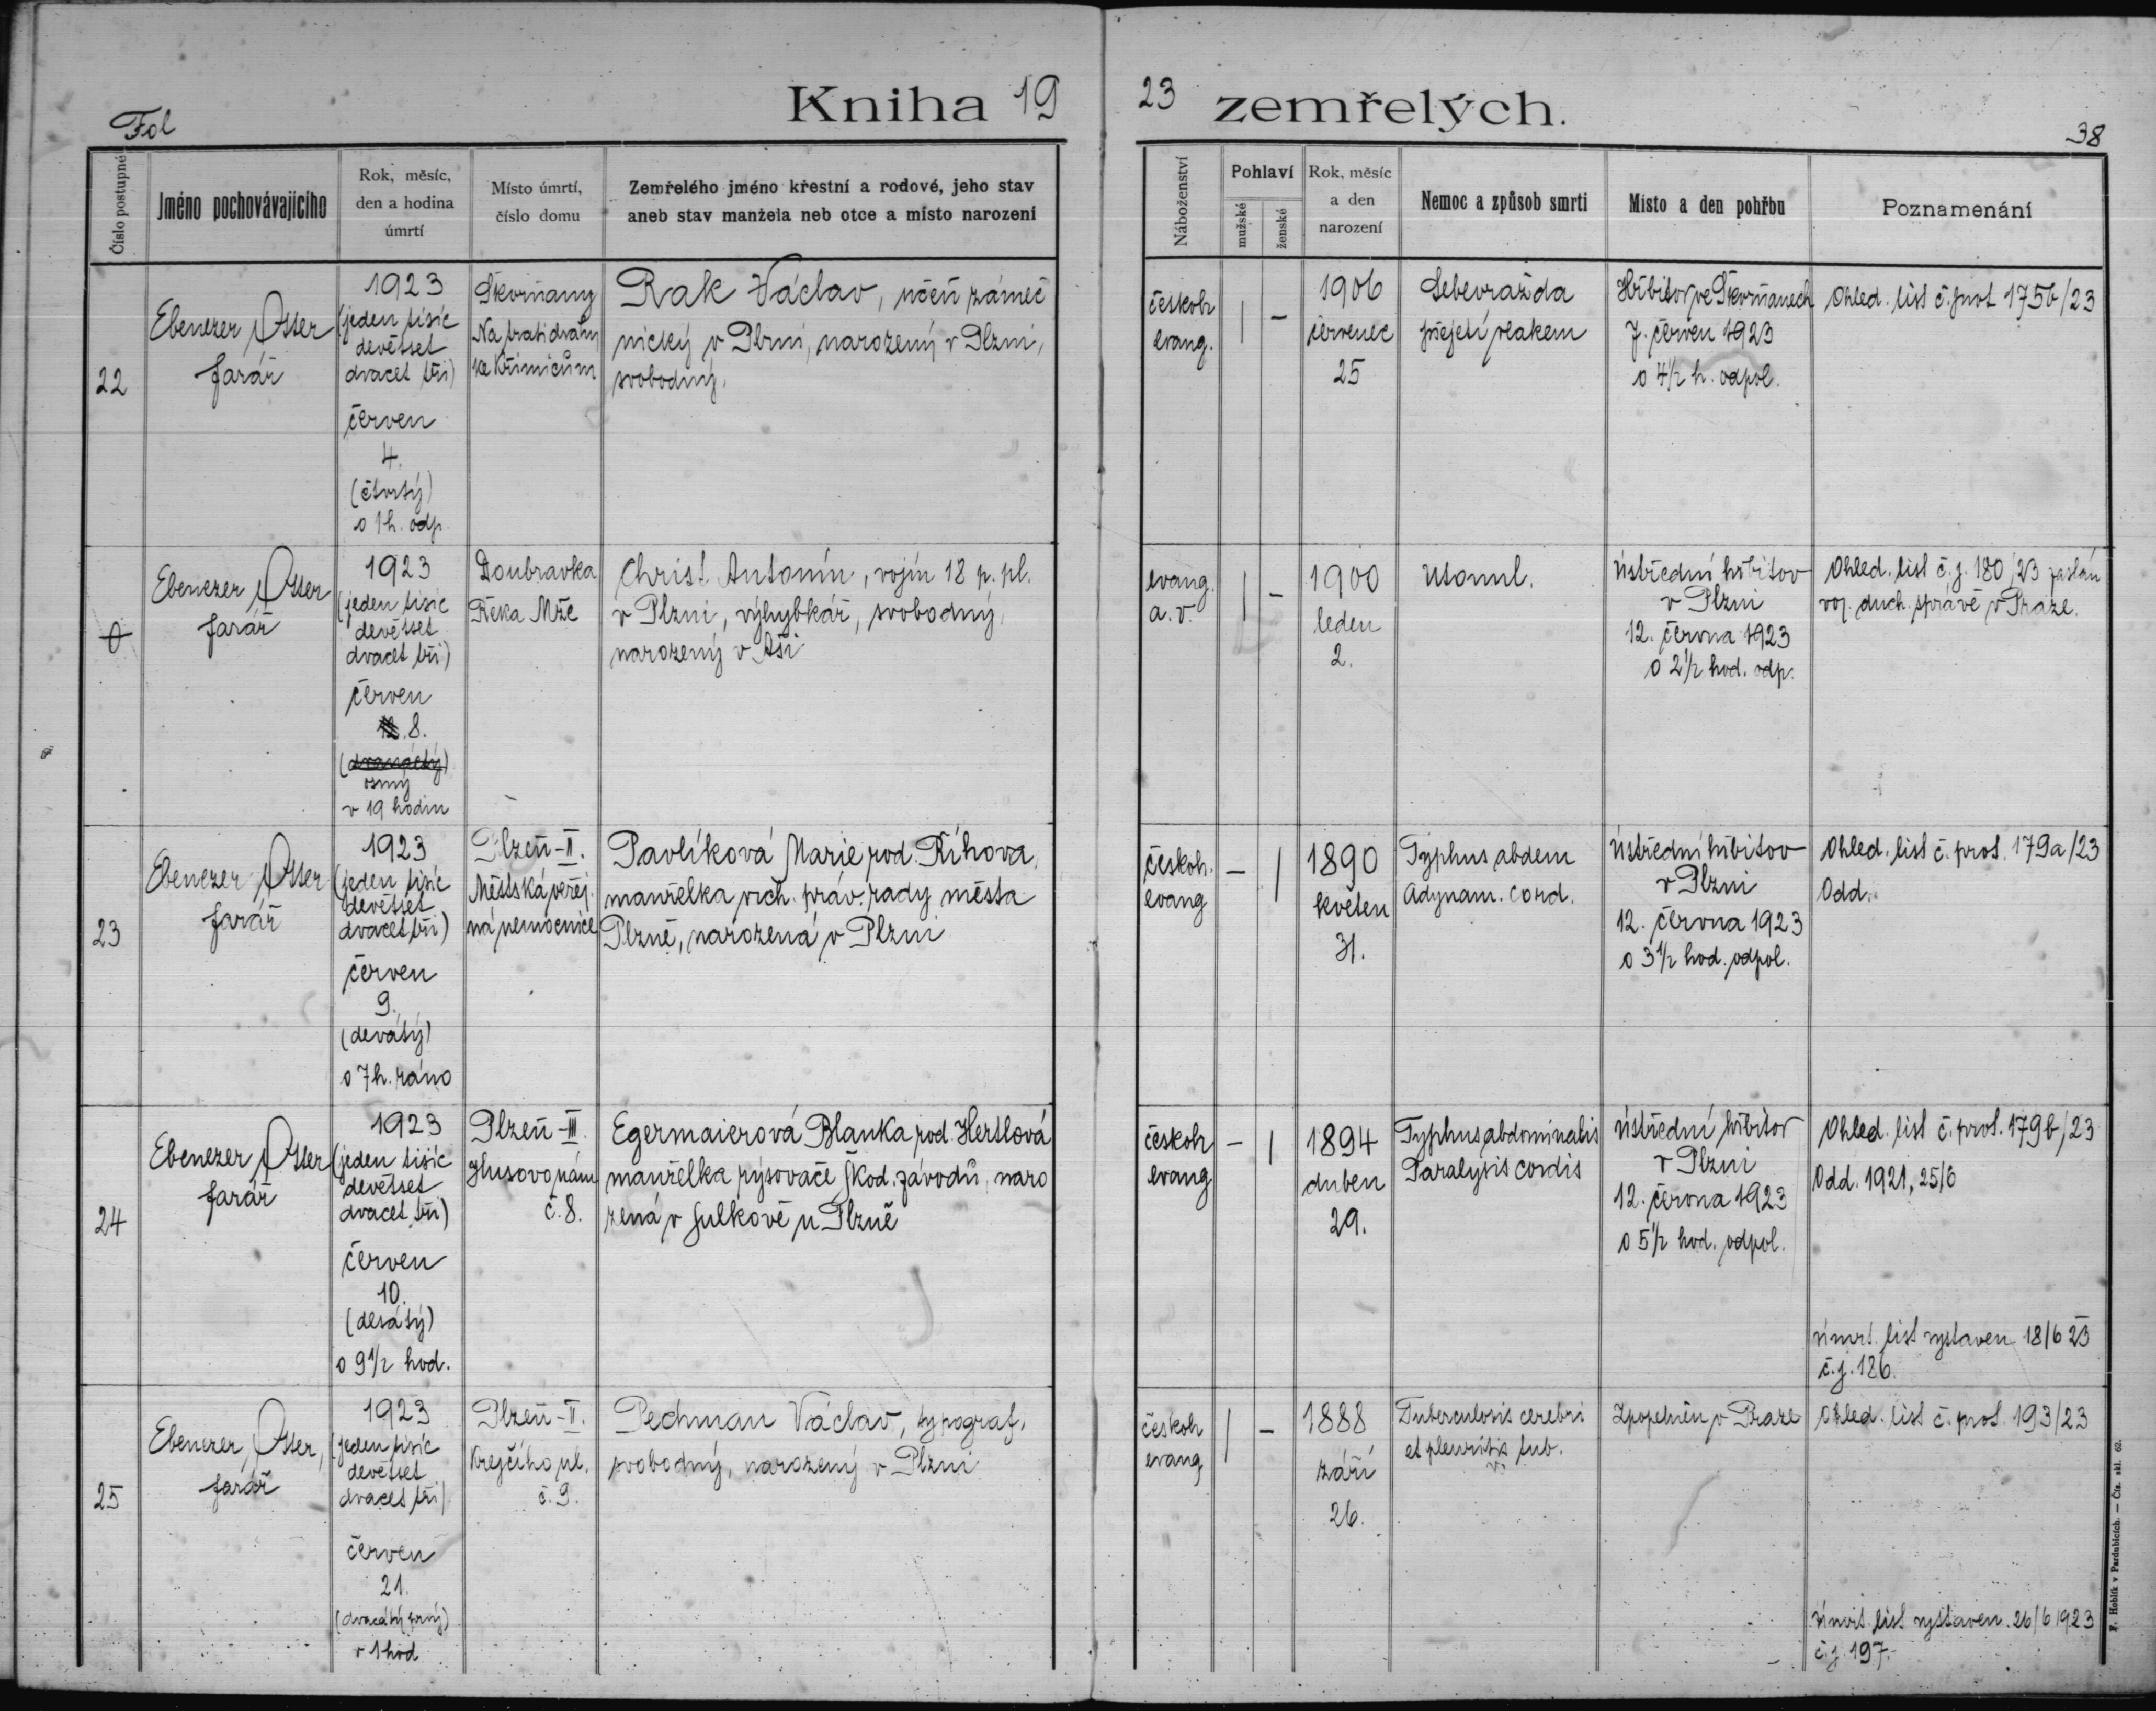 Kniha 19
23 zemřelých.
Fol
38
Číslo postupné
Jméno pochovávajícího
Rok, měsíc,
den a hodina
úmrtí
Místo úmrtí,
číslo domu
Zemřelého jméno křestní a rodové, jeho stav
aneb stav manžela neb otce a místo narození
Náboženství
Pohlaví
mužské
ženské
Rok, měsíc
a den
narození
Nemoc a způsob smrti
Místo a den pohřbu
Poznamenání
22
Ebenezer Otter
farář
1923
(jeden tisíc
devětset
dvacet tři)
červen
4.
(čtvrtý)
o 1 h. odp.
Škvrňany
Na trati dráhy
ke Křimicům
Rak Václav, učeň zámeč
nický v Plzni, narozený v Plzni,
svobodný.
českobr
evang.
|
–
1906
červenec
25
Sebevražda
přejetí vlakem
Hřbitov ve Škvrňanech
7. červen 1923
o 4½ h. odpol.
Ohled. list č. prot 175b/23
0
Ebenezer Otter
farář
1923
(jeden tisíc
devětset
dvacet tři)
červen
12. 8.
(dvanáctý)
osmý
v 19 hodin
Doubravka
Řeka Mže
Christ Antonín, vojín 18 p. pl.
v Plzni, výhybkář, svobodný,
narozený v Aši
evang.
a. v.
|
–
1900
leden
2.
Utonul.
Ústřední hřbitov
v Plzni
12. června 1923
o 2½ hod. odp.
Ohled. list č. j. 180/23 zaslán
voj. duch. správě v Praze.
23
Ebenezer Otter
farář
1923
(jeden tisíc
devětset
dvacet tři)
červen
9.
(devátý)
o 7 h. ráno
Plzeň-II.
Městská veřej
ná nemocnice
Pavlíková Marie roz. Říhova,
manželka vrch. práv. rady města
Plzně, narozená v Plzni
českob.
evang
–
|
1890
květen
31.
Typhus abdem
Adynam. cord.
Ústřední hřbitov
v Plzni
12. června 1923
o 3½ hod. odpol.
Ohled. list č. prot. 179a/23
Odd.
24
Ebenezer Otter
farář
1923
(jeden tisíc
devětset
dvacet tři)
červen
10.
(desátý)
o 9½ hod.
Plzeň-III.
Husovo nám
č. 8.
Egermaierová Blanka rod. Hertlová
manželka rýsovače Škod. závodů, naro
zená v Sulkově u Plzně
českob
evang
–
|
1894
duben
29.
Typhus abdominalis
Paralysis cordis
Ústřední hřbitov
v Plzni
12. června 1923
o 5½ hod. odpol.
Ohled. list č. prot. 179b/23
Odd. 1921, 25/6
Úmrt. list vystaven 18/6 23
č. j. 186.
25
Ebenezer Otter,
farář
1923
(jeden tisíc
devětset
dvacet tři)
červen
21.
(dvacátý prvý)
v 1 hod
Krejčího ul.
č. 9.
Pechman Václav, typograf,
svobodný, narozený v Plzni
českob
evang
|
–
1888
září
26.
Tuberculosis cerebri
et pleuritis tub.
Zpopelněn v Praze
Ohled. list č. prot. 193/23
Úmrt. list vystaven. 26/6 1923
č. j. 197.
F. Hoblík v Pardubicích. — Čís. skl. 62.